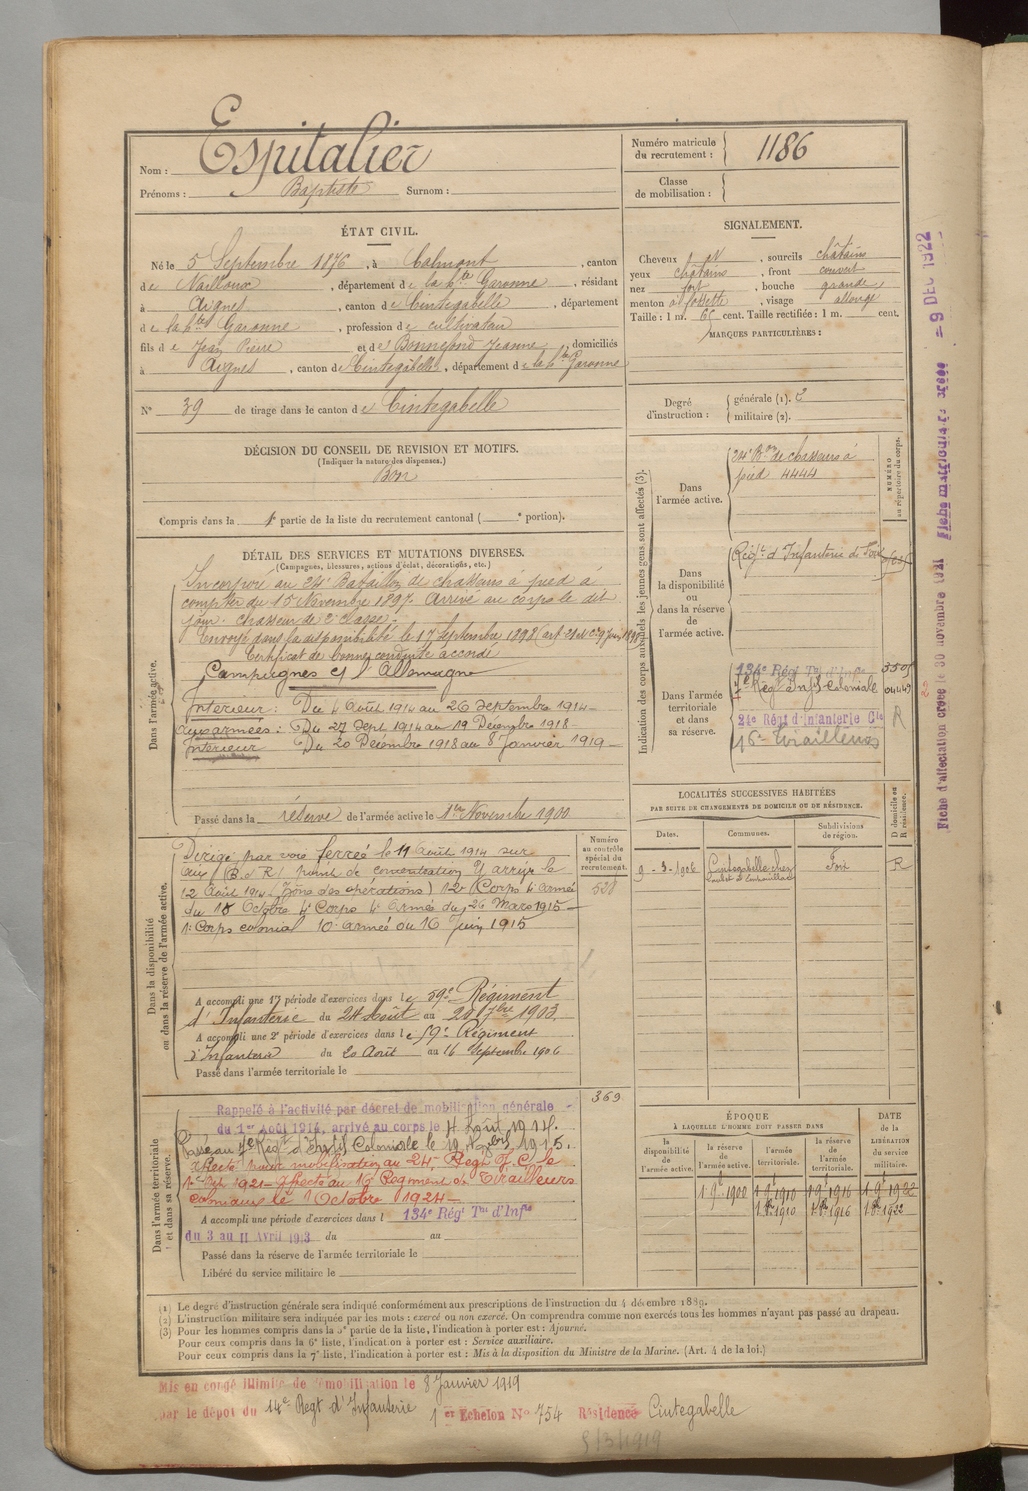 Nom : Espitalier
Prénoms : Baptiste Surnom :
Numéro matricule du recrutement : 1186
Classe de mobilisation :
ÉTAT CIVIL.
Né le 5 Septembre 1876, à Calmont, canton
de Nailloux, département de la Hte Garonne, résidant
à Aignes, canton de Cintegabelle, département
de la Hte Garonne, profession de cultivateur
fils de Jean Pierre et de Bonnefond Jeanne, domiciliés
à Aignes, canton de Cintegabelle, département de la Hte Garonne
N° 39 de tirage dans le canton de Cintegabelle
SIGNALEMENT.
Cheveux N, sourcils châtains
yeux châtains, front couvert
nez fort, bouche grande
menton à fossette, visage allongé
Taille : 1 m. 66 cent. Taille rectifiée : 1 m. cent.
MARQUES PARTICULIÈRES :
Degré d'instruction : générale (1). 2
militaire (2).
DÉCISION DU CONSEIL DE REVISION ET MOTIFS.
(Indiquer la nature des dispenses.)
Bon
Compris dans la 1e partie de la liste du recrutement cantonal ( e portion).
DÉTAIL DES SERVICES ET MUTATIONS DIVERSES.
(Campagnes, blessures, actions d'éclat, décorations, etc.)
Dans l'armée active.
Incorporé au 24e Bataillon de chasseurs à pied à
compter du 15 Novembre 1897. Arrivé au corps le dit
jour. chasseur de 2e classe.
Envoyé dans la disponibilité le 17 Septembre 1898
Certificat de bonne conduite accordé
Campagnes c/ l'Allemagne
Intérieur : Du 4 Août 1914 au 26 Septembre 1914
aux armées : Du 27 Sept 1914 au 19 Décembre 1918
Intérieur Du 20 Décembre 1918 au 8 Janvier 1919
Passé dans la réserve de l'armée active le 1er Novembre 1900
Indication des corps auxquels les jeunes gens sont affectés (3).
NUMÉRO au répertoire du corps.
Dans l'armée active.
24e Bon de chasseurs à
pied 4444
Dans la disponibilité ou dans la réserve de l'armée active.
Régt d'Infanterie de Foix
Dans l'armée territoriale et dans sa réserve.
134e Régt Tal d'Infie 3505
Régt d'Inf Coloniale 04449
24e Régt d'Infanterie Cle R
16e Tirailleurs
LOCALITÉS SUCCESSIVES HABITÉES
PAR SUITE DE CHANGEMENTS DE DOMICILE OU DE RÉSIDENCE.
Dates. Communes. Subdivisions de région. D domicile ou R résidence.
9-3-1906 Cintegabelle chez Foix R
Dans la disponibilité ou dans la réserve de l'armée active.
Numéro au contrôle spécial du recrutement.
528
Dirigé par voie ferrée le 11 Août 1914 sur
(B.d.R) point de concentration Y arrive le
12 Août 1914 (Zône des opérations) 12e Corps 4e armée
du 18 Octobre 4e Corps 4e Armée du 26 Mars 1915
1e Corps colonial 10e armée du 16 Juin 1915
A accompli une 1re période d'exercices dans le 59e Régiment
d'Infanterie du 24 Août au 20 7bre 1903
A accompli une 2e période d'exercices dans le 59e Régiment
d'Infanterie du 20 Août au 16 Septembre 1906
Passé dans l'armée territoriale le
Dans l'armée territoriale et dans sa réserve.
369
Rappelé à l'activité par décret de mobilisation générale
du 1er Août 1914, arrivé au corps le 4 Août 1914.
Passé au 7e Régt d'Inf Coloniale le 1915.
Affecté mobilisation au 24e Régt I.C. le
1921 - Affecté au 16e Régiment de Tirailleurs
coloniaux le 1 Octobre 1924
A accompli une période d'exercices dans l 134e Régt Tal d'Infie
du 3 au 11 Avril 1913 du au
Passé dans la réserve de l'armée territoriale le
Libéré du service militaire le
ÉPOQUE
À LAQUELLE L'HOMME DOIT PASSER DANS
la disponibilité de l'armée active. la réserve de l'armée active. l'armée territoriale. la réserve de l'armée territoriale.
DATE de la LIBÉRATION du service militaire.
1 9e 1900 1 9e 1910 1 9e 1916 1 9e 1922
1 8e 1910 1 8e 1916 1 8e 1922
(1) Le degré d'instruction générale sera indiqué conformément aux prescriptions de l'instruction du 4 décembre 1889.
(2) L'instruction militaire sera indiquée par les mots : exercé ou non exercé. On comprendra comme non exercés tous les hommes n'ayant pas passé au drapeau.
(3) Pour les hommes compris dans la 5e partie de la liste, l'indication à porter est : Ajourné.
Pour ceux compris dans la 6e liste, l'indication à porter est : Service auxiliaire.
Pour ceux compris dans la 7e liste, l'indication à porter est : Mis à la disposition du Ministre de la Marine. (Art. 4 de la loi.)
Mis en congé illimité de démobilisation le 8 Janvier 1919
par le dépôt du 14e Régt d'Infanterie 1er Echelon No 754 Résidence Cintegabelle
5/3/1919
Fiche d'affectation créée le 30 novembre 1921 Fiche matriculaire créée = 9 DEC 1922